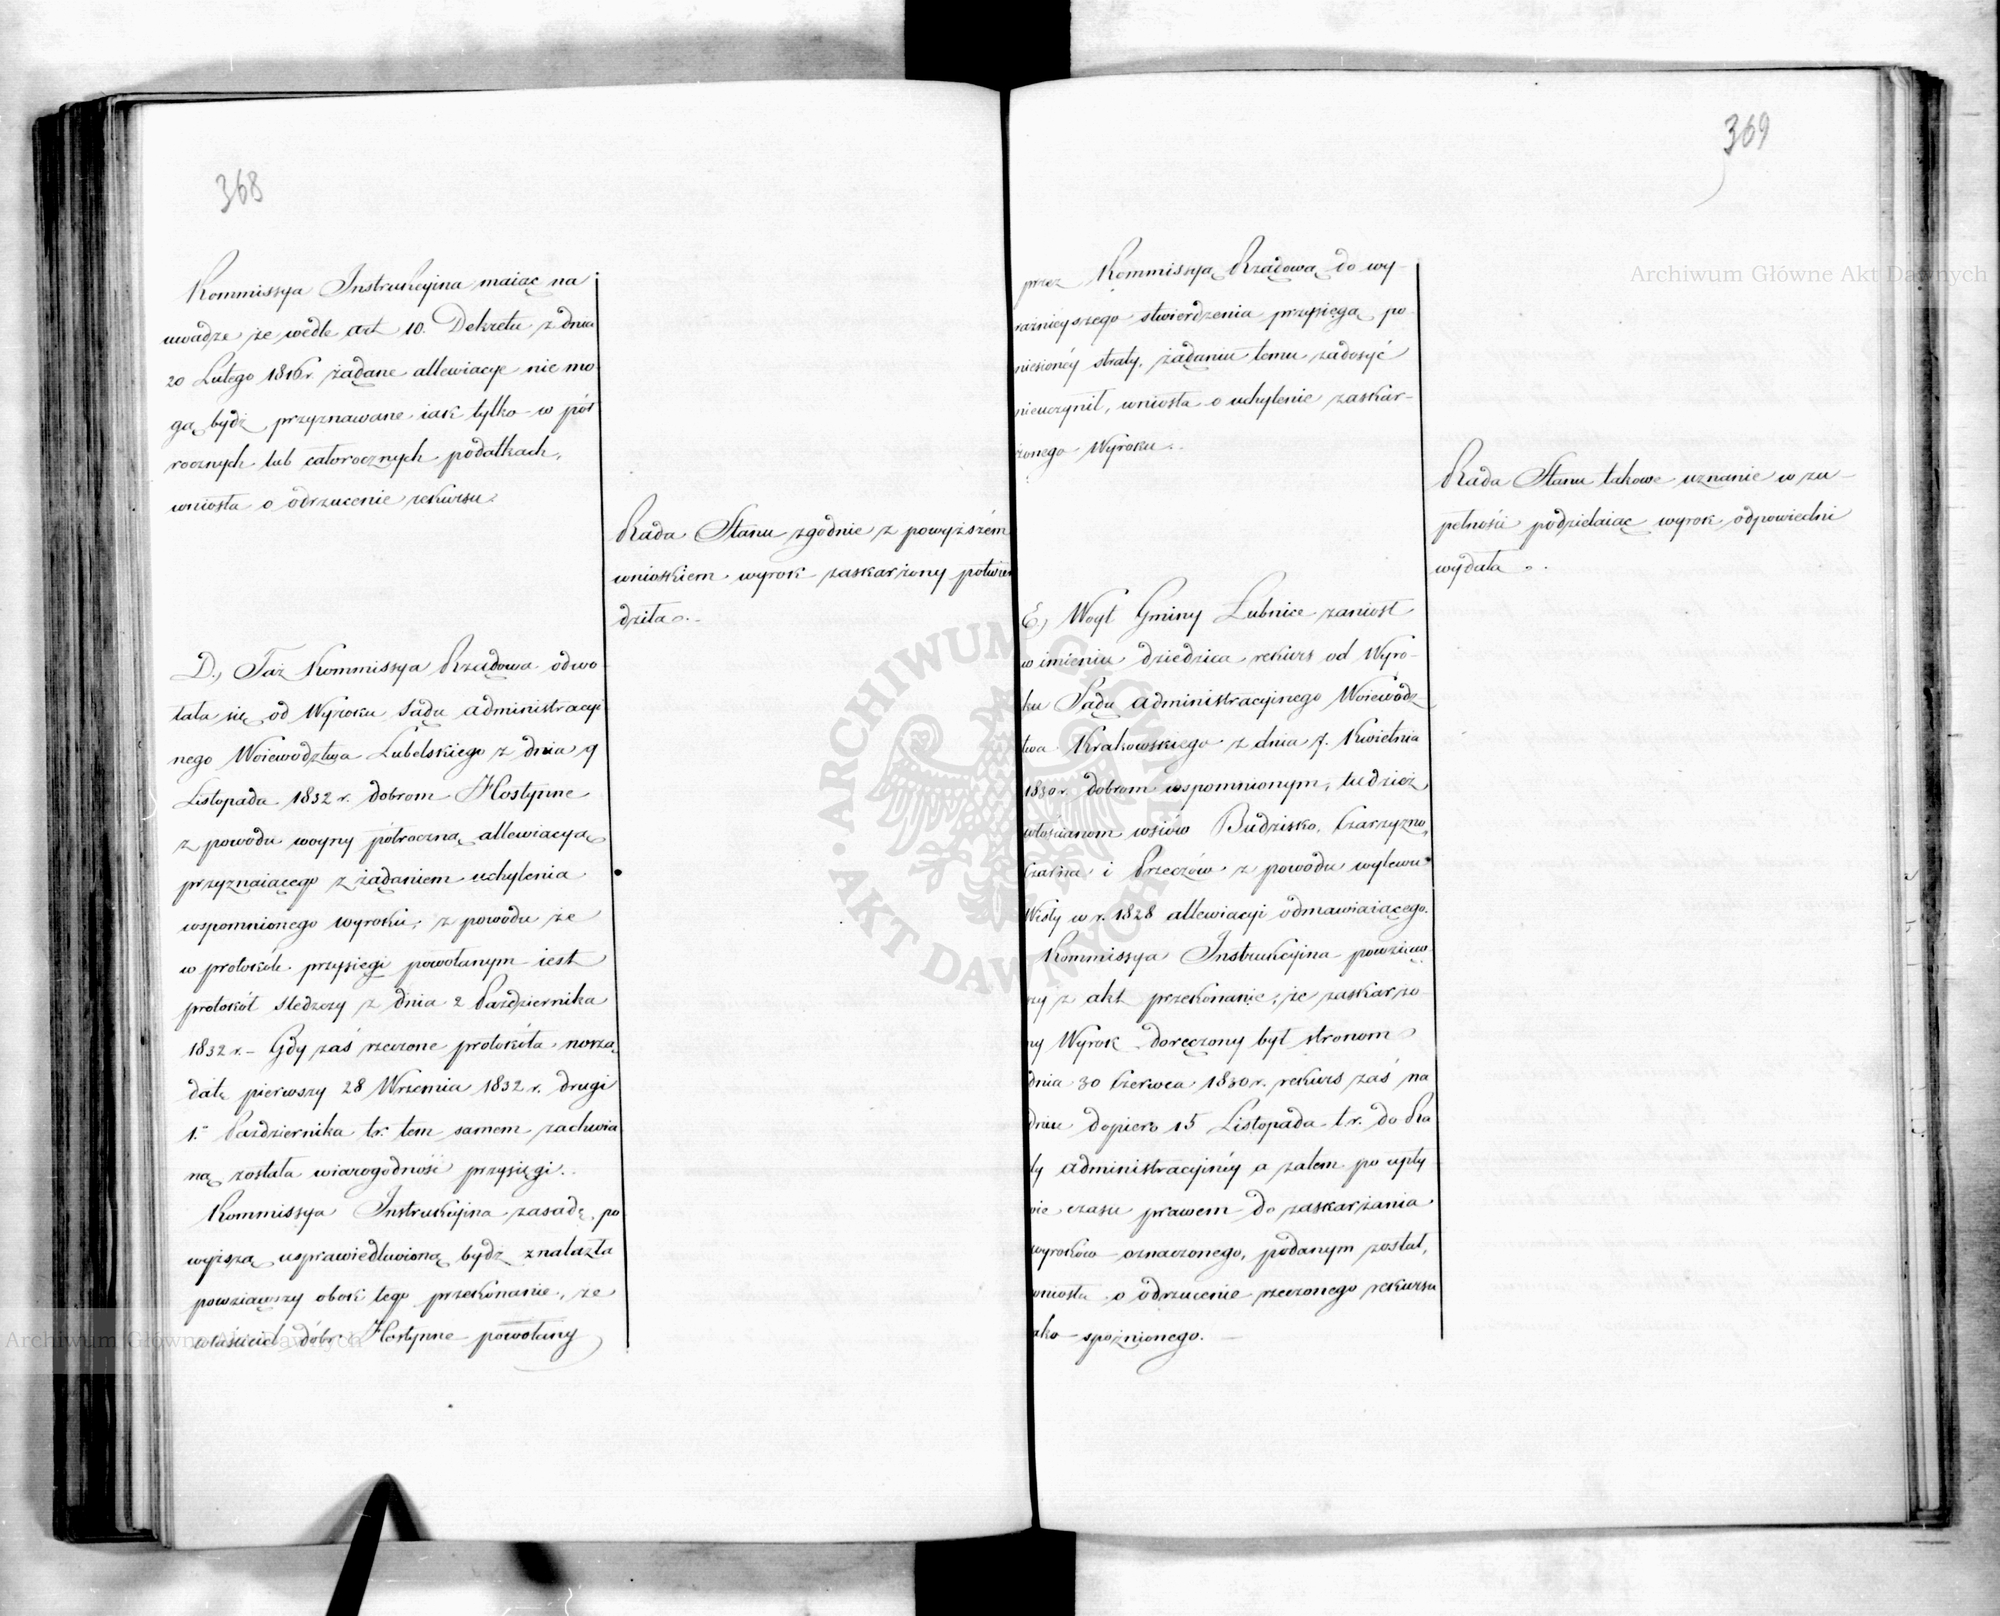 368
Kommissya Instrukcyina maiąc na
uwadze że wedle art 10. Dekretu z dnia
20 Lutego 1816 r. żądane allewiacye nie mo
gą bydź przyznawane iak tylko w pół
rocznych lub całorocznych podatkach,
wniosła o odrzucenie rekursu.
Rada Stanu zgodnie z powyższém
wnioskiem wyrok zaskarżony potwier
dziła.
D., Taż Kommissya Rządowa odwo
łała się od Wyroku Sądu administracyi
nego Woiewodztwa Lubelskiego z dnia 9
Listopada 1832 r. dobrom Hostynne
z powodu woyny półroczną allewiacyą
przyznaiącego z żądaniem uchylenia
wspomnionego wyroku, z powodu że
w protokóle przysięgi powołanym iest
protokół śledczy z dnia 2 Października
1832 r. – Gdy zaś rzeczone protokóła noszą
datę pierwszy 28 Września 1832 r. drugi
1. Października t.r. tem samem zachwia
ną została wiarogodność przysięgi.
Kommissya Instrukcyina zasadę po
wyższą usprawiedliwioną bydź znalazła
powziąwszy obok tego przekonanie, że
właściciel dóbr Hostynne powołany
369
przez Kommissyą Rządową do wy-
raźnieyszego stwierdzenia przysięgą po
niesionéy straty, żądaniu temu zadosyć
nieuczynił, wniosła o uchylenie zaskar-
żonego Wyroku.
Rada Stanu takowe uznanie w zu-
pełności podzielaiąc wyrok odpowiedni
wydała.
E., Woyt Gminy Łubnice zaniosł
w imieniu dziedzica rekurs od Wyro-
ku Sądu administracyinego Woiewodz
twa Krakowskiego z dnia 7. Kwietnia
1830 r. dobrom wspomnionym, tudzież
włościanom wsiów Budzisko, Czarzyzna,
Czarna i Przeczów z powodu wylewu
Wisły w r. 1828 allewiacyi odmawiaiącego.
Kommissya Instrukcyina powziąw
szy z akt przekonanie, że zaskarżo-
ny Wyrok doręczony był stronom
dnia 30 Czerwca 1830 r. rekurs zaś na
dniu dopiero 15 Listopada t.r. do Ra
dy administracyinéy a zatem po upły
wie czasu prawem do zaskarżania
wyroków oznaczonego, podanym został,
wniosła o odrzucenie rzeczonego rekursu
iako spoźnionego.
Archiwum Główne Akt Dawnych
Archiwum Główne Akt Dawnych
ARCHIWUM GŁÓWNE
AKT DAWNYCH